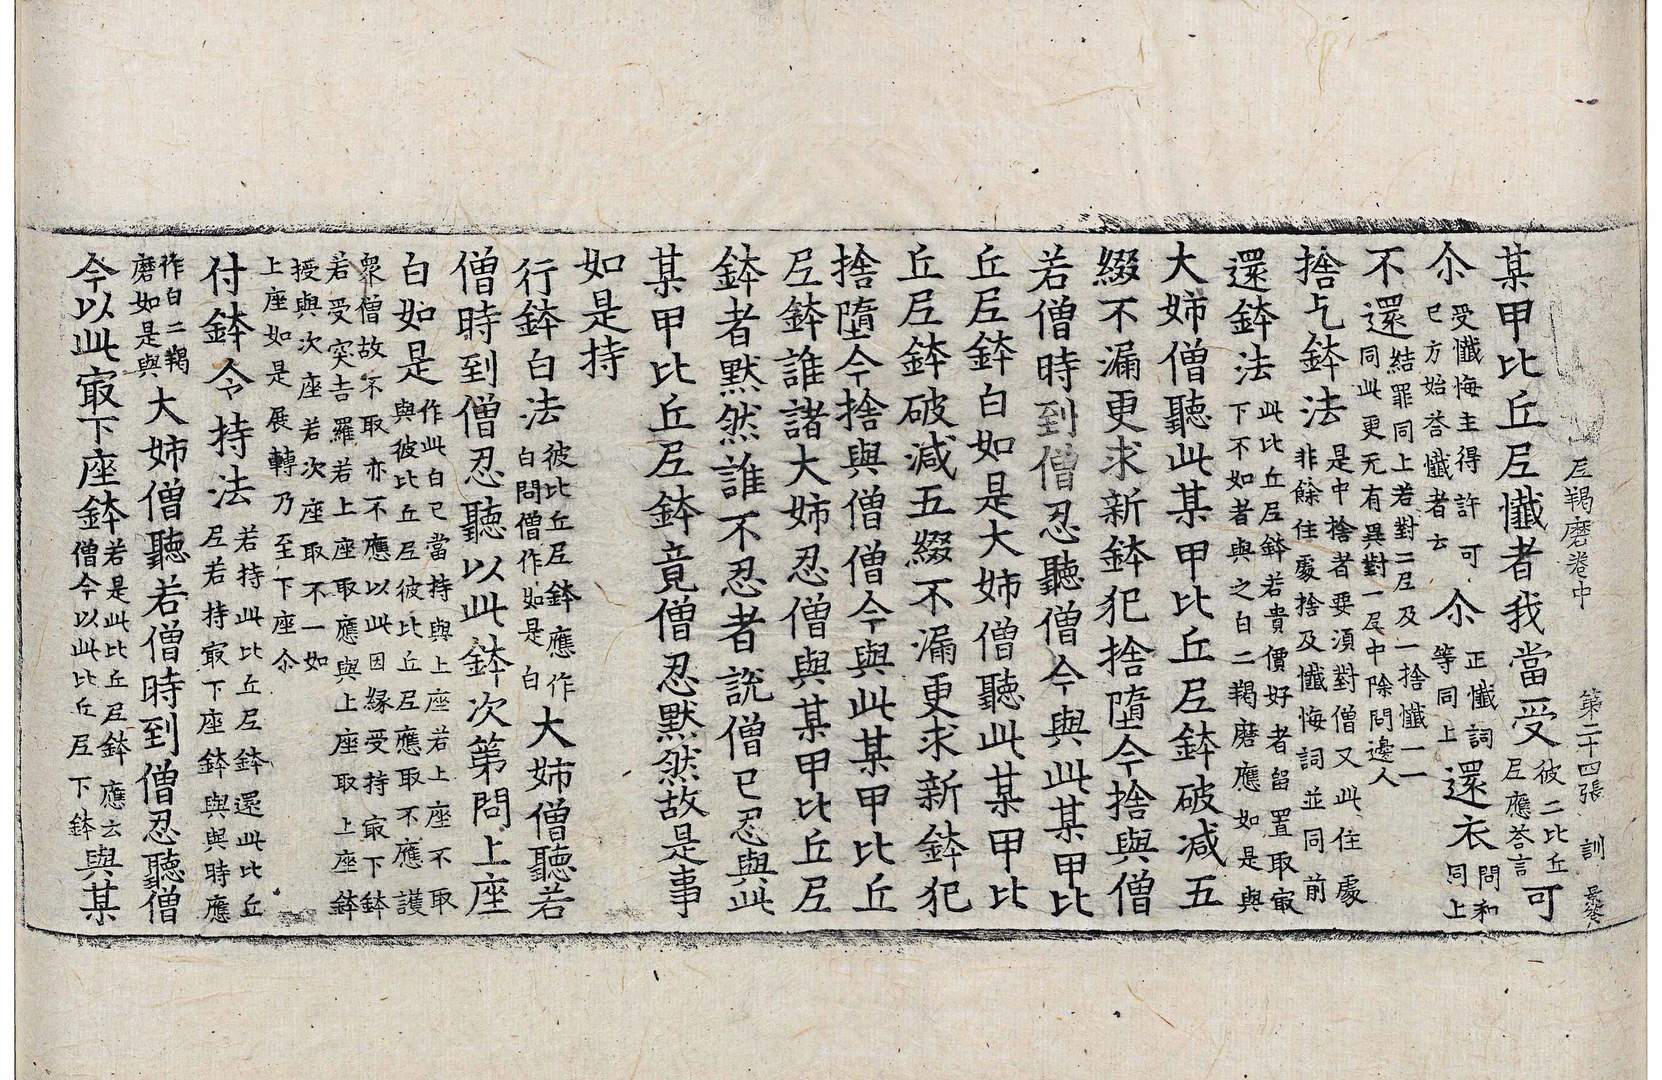 尼羯磨卷中　第二十四張　訓
某甲比丘尼懺者我當受彼二比丘尼應答言可
尒受懺悔主得許可已方始答懺者云尒正懺詞等同上還衣問和同上
不還結罪同上若對二尼及一捨懺一一同此更无有異對一尼中除問邊人
捨乞鉢法是中捨者要須對僧又此住處非餘住處捨及懺悔詞並同前
還鉢法此比丘尼鉢若貴價好者留置取㝡下不如者與之白二羯磨應如是與
大姉僧聽此某甲比丘尼鉢破減五
綴不漏更求新鉢犯捨墮今捨與僧
若僧時到僧忍聽僧今與此某甲比
丘尼鉢白如是大姉僧聽此某甲比
丘尼鉢破減五綴不漏更求新鉢犯
捨墮今捨與僧僧今與此某甲比丘
尼鉢誰諸大姉忍僧與某甲比丘尼
鉢者默然誰不忍者說僧已忍與此
某甲比丘尼鉢竟僧忍默然故是事
如是持
行鉢白法彼比丘尼鉢應作白問僧作如是白大姉僧聽若
僧時到僧忍聽以此鉢次第問上座
白如是作此白已當持與上座若上座不取與彼比丘尼彼比丘尼應取不應護
衆僧故不取亦不應以此因緣受持㝡下鉢若受突吉羅若上座取應與上座取上座鉢
授與次座若次座取不一如上座如是展轉乃至下座尒
付鉢令持法若持此比丘尼鉢還此比丘尼若持㝡下座鉢與與時應
作白二羯磨如是與大姉僧聽若僧時到僧忍聽僧
今以此㝡下座鉢若是此比丘尼鉢應云僧今以此比丘尼下鉢與某